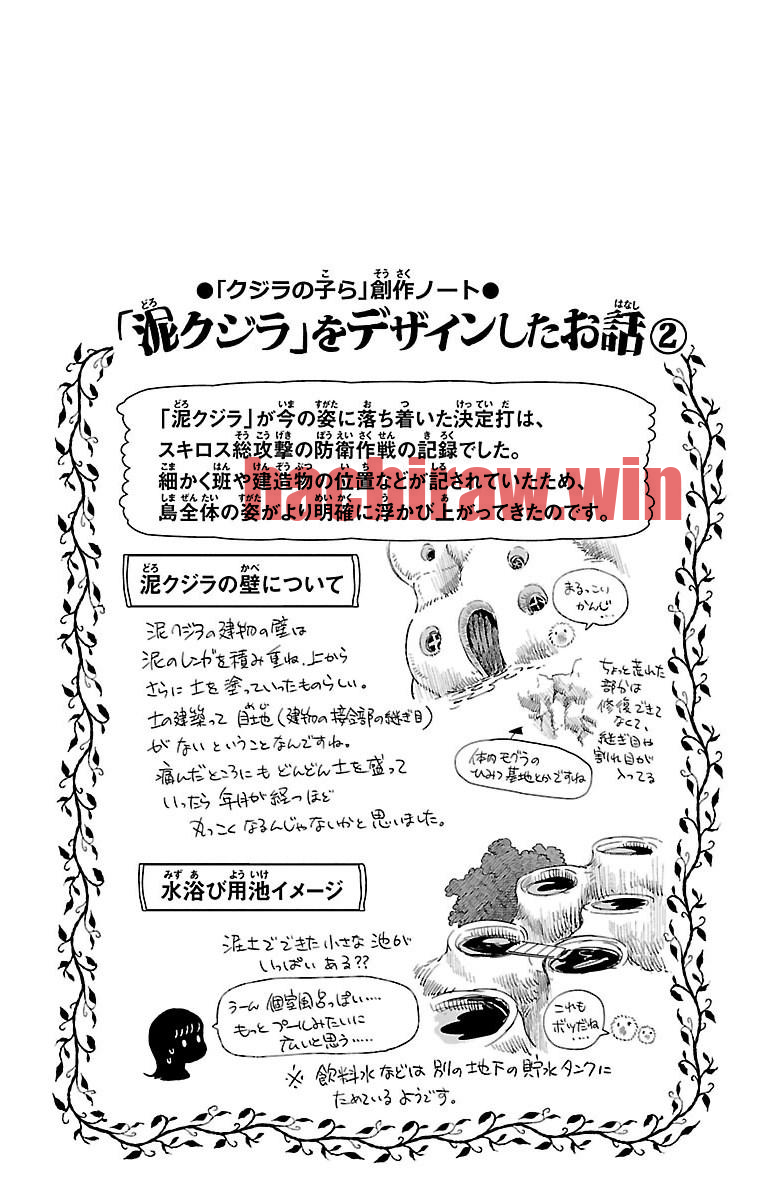 ●「クジラの子ら」創作ノート●
「泥クジラ」をデザインしたお話②
「泥クジラ」が今の姿に落ち着いた決定打は、
スキロス総攻撃の防衛作戦の記録でした。
細かく班や建造物の位置などが記されていたため、
島全体の姿がより明確に浮かび上がってきたのです。
hachiraw win
泥クジラの壁について
泥クジラの建物の壁は
泥のレンガを積み重ね、上から
さらに土を塗っていったものらしい。
土の建築って目地(建物の接合部の継ぎ目)
がないということなんですね。
痛んだところにもどんどん土を盛って
いったら年月が経つほど
丸っこくなるんじゃないかと思いました。
まるっこい
かんじ…
ちょっと荒れた
部分は
修復できて
なくて、
継ぎ目や
割れ目が
入ってる
体のモグラの
ひみつ基地とかですね
水浴び用池イメージ
泥土でできた小さな池が
いっぱいある??
うーん個室風呂っぽい……
もっとプールみたいに
広いと思う……
これも
ボツだね
…
※飲料水などは別の地下の貯水タンクに
ためているようです。